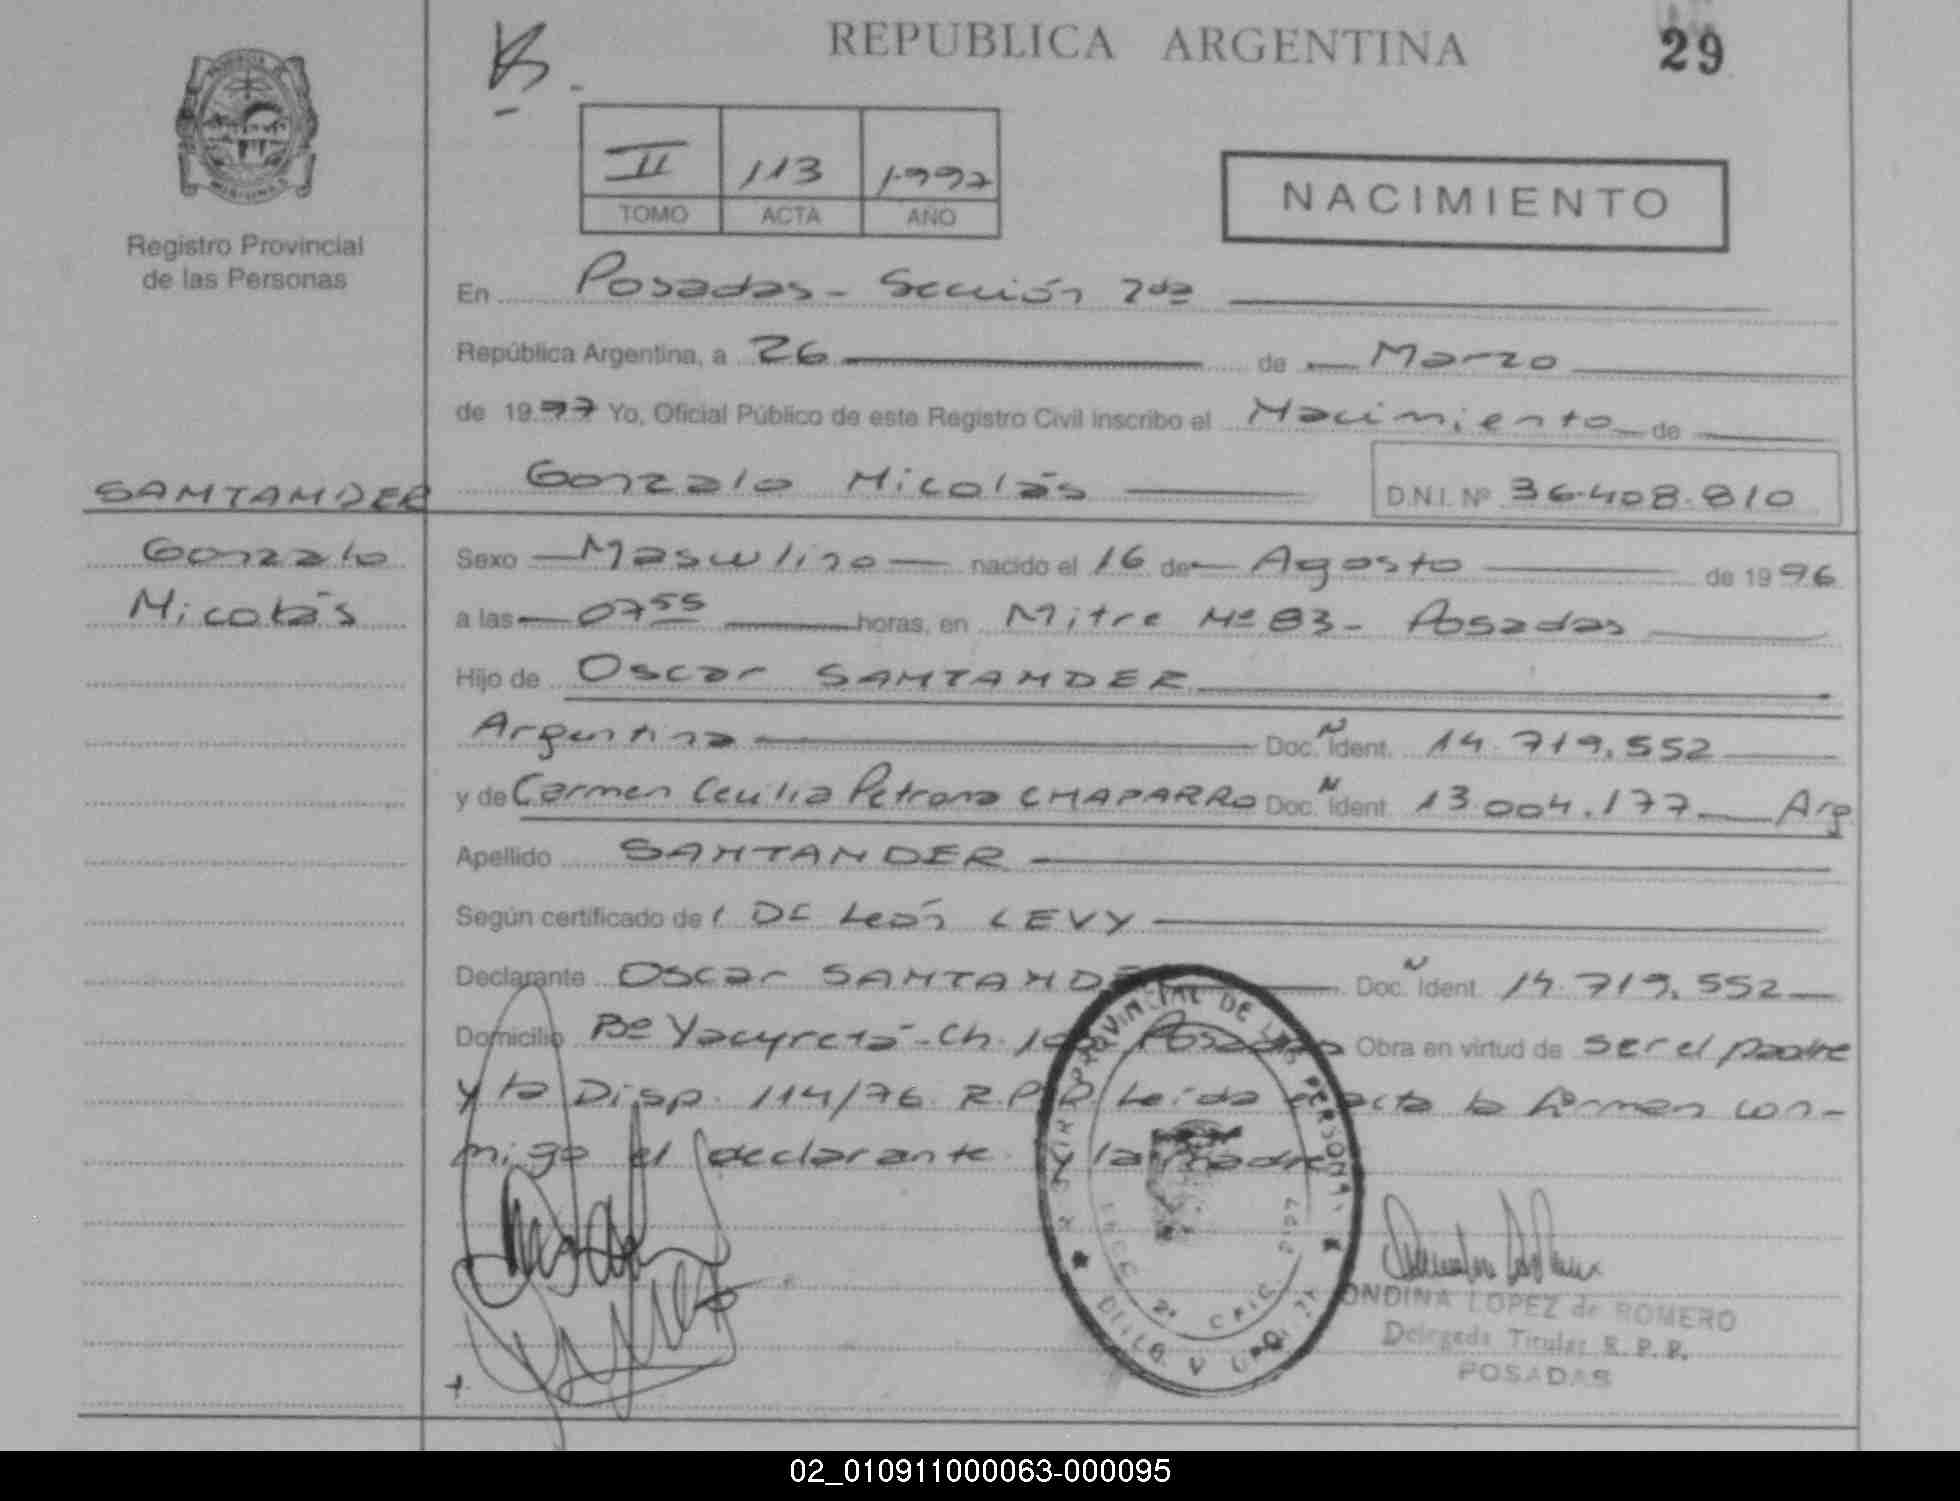 REPUBLICA ARGENTINA
29
II 113 1997
TOMO ACTA AÑO
NACIMIENTO
Registro Provincial
de las Personas
En Posadas - Sección 2da
República Argentina, a 26 de Marzo
de 1997 Yo, Oficial Público de este Registro Civil inscribo el Nacimiento de
SANTANDER Gonzalo Nicolás D.N.I. Nº 36.408.810
Gonzalo Sexo Masculino nacido el 16 de Agosto de 1996
Nicolás a las 07 55 horas, en Mitre Nº 83 - Posadas
Hijo de Oscar SANTANDER
Argentina Doc. Ident. 14.719.552
y de Carmen Cecilia Petrona CHAPARRO Doc. Ident. 13.004.177 Arg
Apellido SANTANDER
Según certificado de León LEVY
Declarante Oscar SANTANDER Doc. Ident. 14.719.552
Domicilio Bº Yacyretá - Ch. Posadas Obra en virtud de ser el padre
y la Disp. 114/76 R.P.P. Leída el acta la firman con-
migo el declarante y la madre
ONDINA LOPEZ de ROMERO
Delegada Titular R.P.P.
POSADAS
02_010911000063-000095